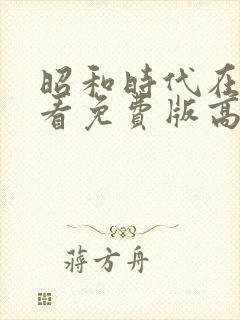 昭和時代在
看免費版高
蔣方舟